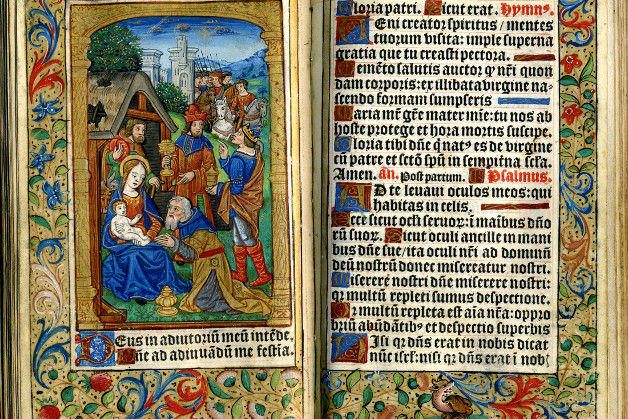 Deus in adiutoriū meū intēde.
Dn̄e ad adiuuādū me festīa.
Gloria patri. Sicut erat. Hymnꝰ.
Veni creator spiritus / mentes
tuorum visita: imple supernā
gratia que tu creasti pectora.
Memēto salutis auctor qꝫ nr̄i quon
dam corporis: ex illibata virgine na-
scendo formam sumpseris
Maria mr̄ gr̄e mater mie: tu nos ab
hoste protege et hora mortis suscipe.
Gloria tibi dn̄e q̄ natꝰ es de virgine
cū patre et sctō spū in sempitna scl̄a.
Amen. an̄. Post partum. Psalmus.
Ad te leuaui oculos meos: qui
habitas in celis.
Ecce sicut ocl̄i seruoꝝ: ī maibus dn̄o
rū suoꝝ. Sicut oculi ancille in mani
bus dn̄e sue / ita oculi nr̄i ad dominū
deū nostrū donec misereatur nostri.
Miserere nostri dn̄e miserere nostri:
qꝛ multū repleti sumus despectione.
Qꝛ multū repleta est aīa nr̄a: oppro
briū abūdātibꝰ et despectio superbis
Nisi qꝛ dn̄s erat in nobis dicat
nūc isrl̄: nisi qꝛ dn̄s erat ī nob̄